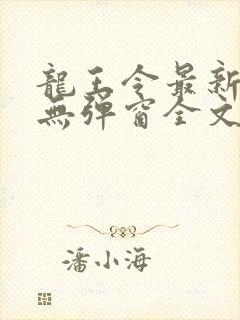 龍王令最新
無彈窗全文
潘小海